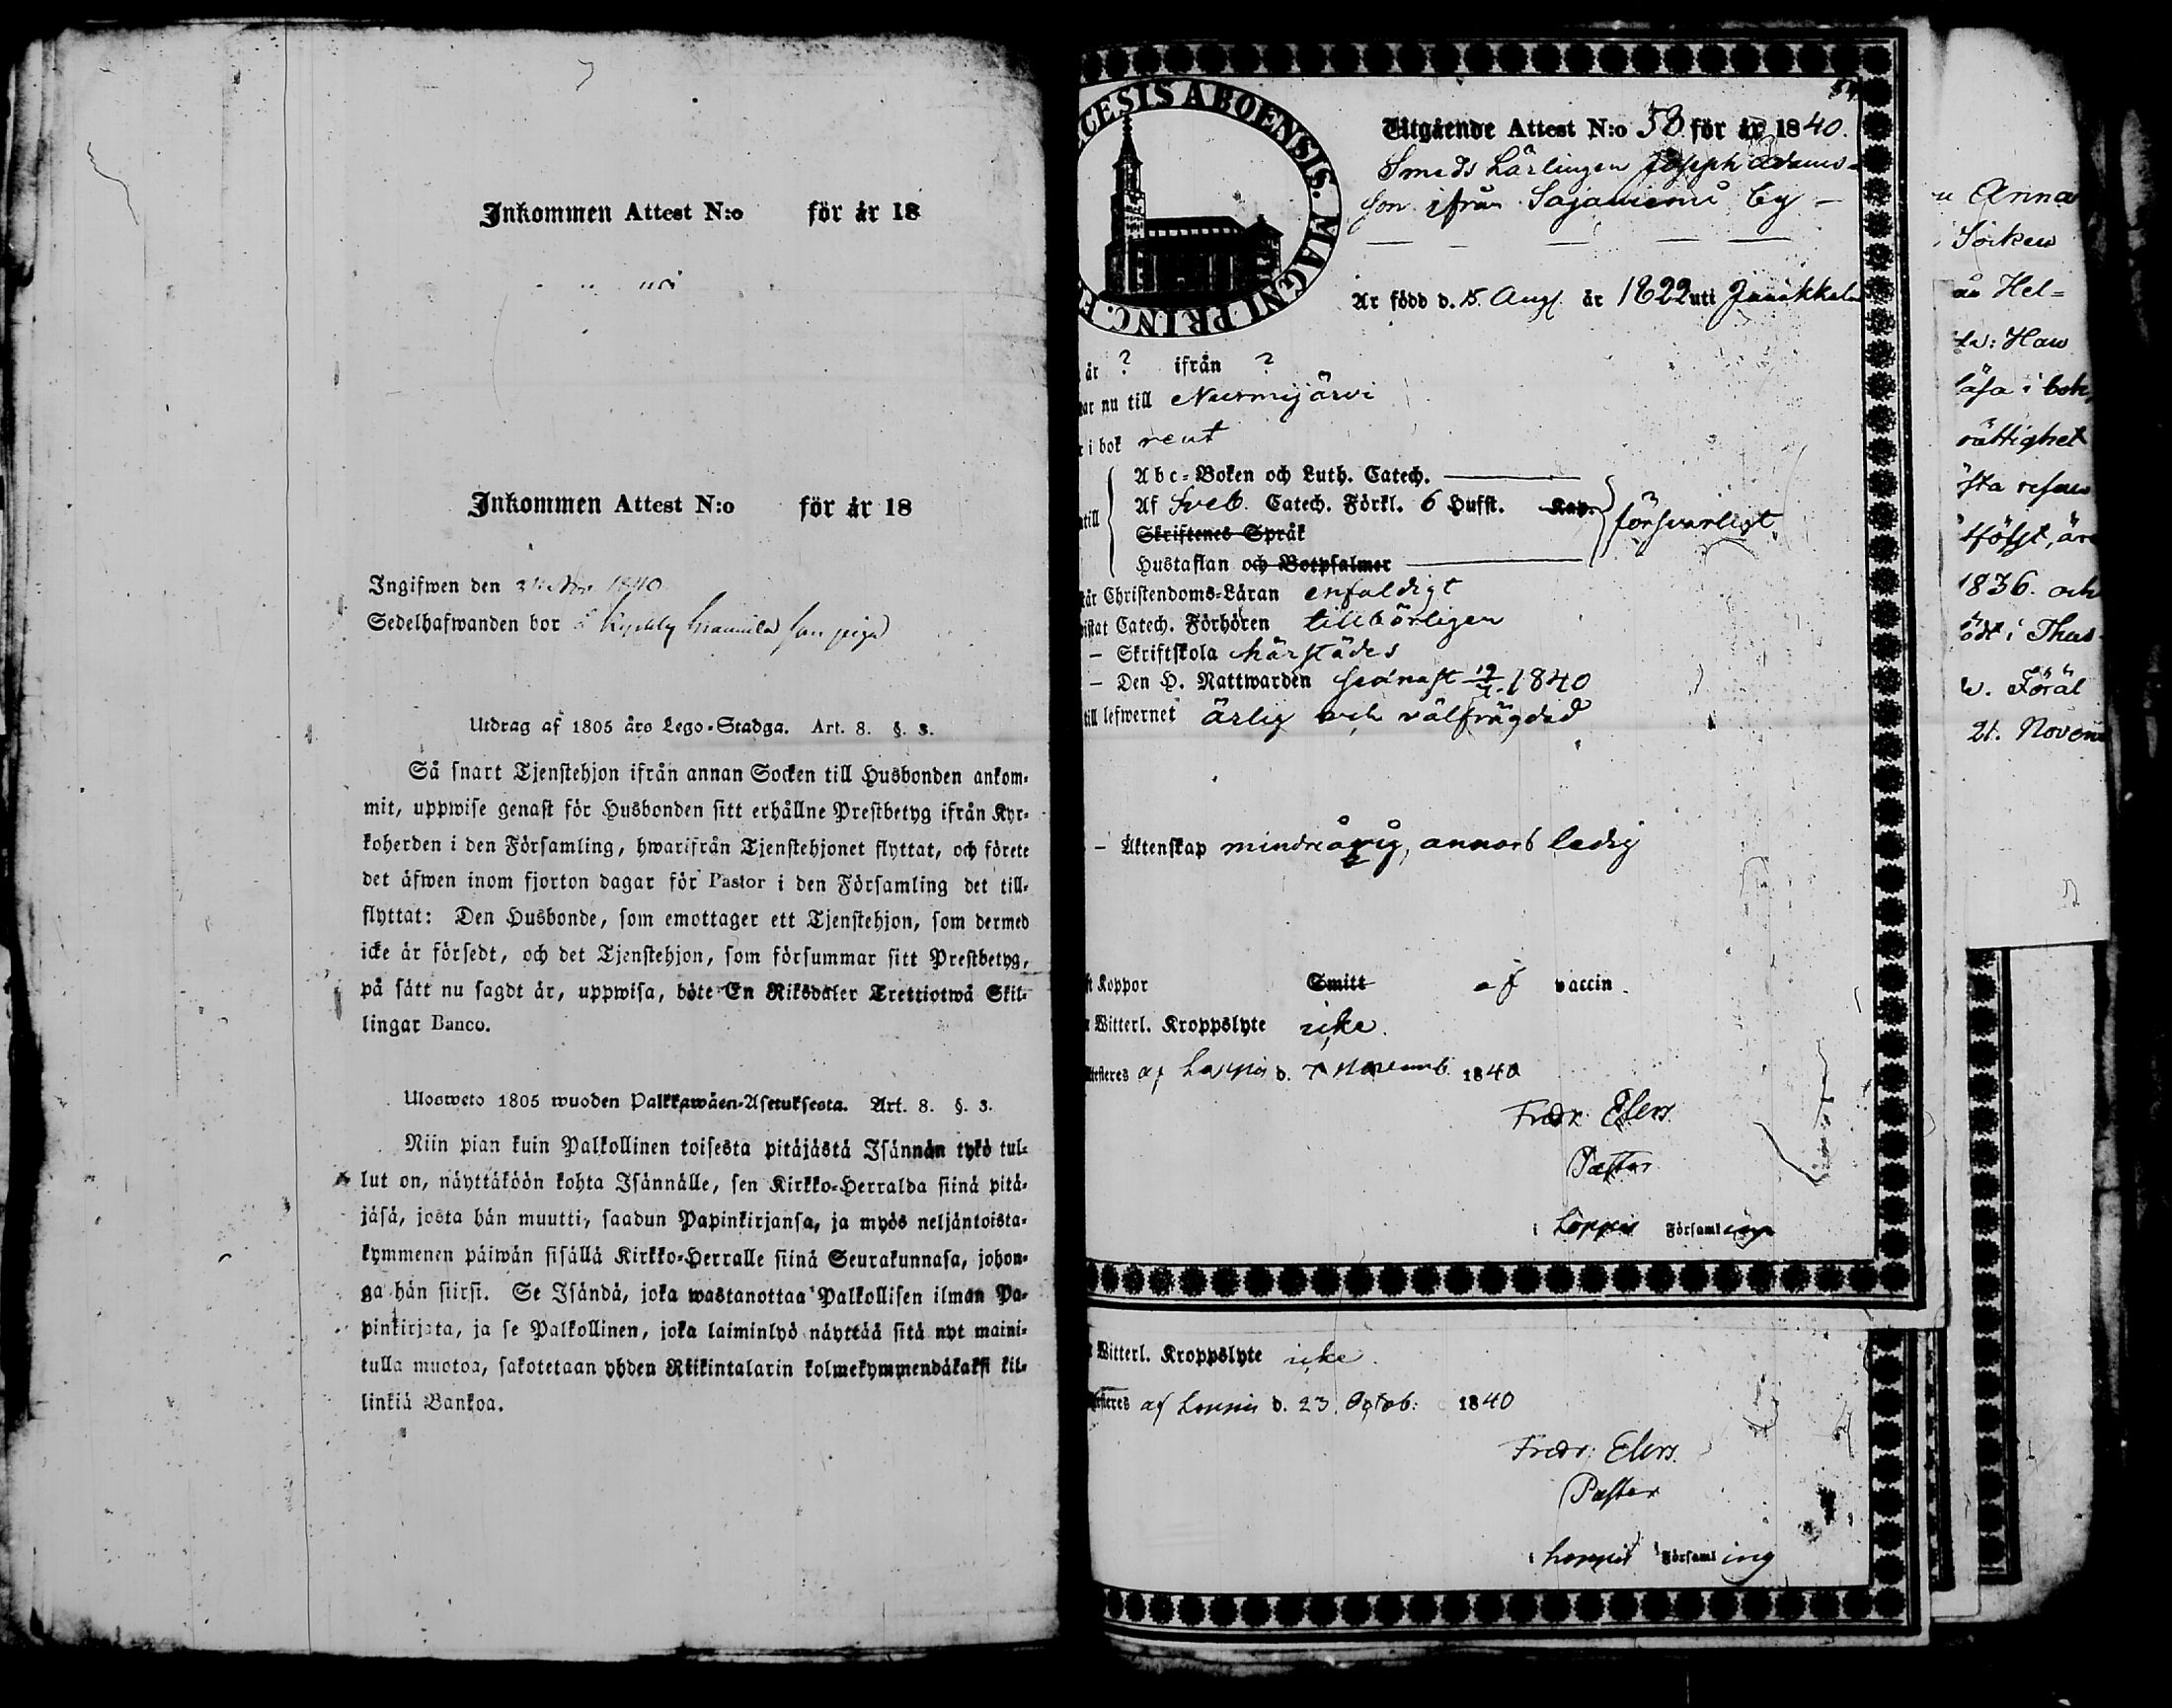 Inkommen Attest N:o för år 18
Inkommen Attest N:o för år 18
Ingifwen den Nov. 1840
Sedelhafwanden bor
Utdrag af 1805 års Lego-Stadga. Art. 8. §. 3.
Så snart Tjenstehjon ifrån annan Socken till Husbonden ankom-
mit, uppwise genast för Husbonden sitt erhållne Prestbetyg ifrån Kyr-
koherden i den Församling, hwarifrån Tjenstehjonet flyttat, och förete
det äfwen inom fjorton dagar för Pastor i den Församling det till-
flyttat: Den Husbonde, som emottager ett Tjenstehjon, som dermed
icke är försedt, och det Tjenstehjon, som försummar sitt Prestbetyg,
på sätt nu sagdt är, uppwisa, böte En Riksdaler Trettiotwå Skil-
lingar Banco.
Ulosweto 1805 wuoden Palkkawäen-Asetuksesta. Art. 8. §. 3.
Niin pian kuin Palkollinen toisesta pitäjästä Isännän tykö tul-
lut on, näyttäköön kohta Isännälle, sen Kirkko-Herralda siinä pitä-
jäsä, josta hän muutti, saadun Papinkirjansa, ja myös neljäntoista-
kymmenen päiwän sisällä Kirkko-Herralle siinä Seurakunnasa, johon-
ga hän siirsi. Se Isändä, joka wastanottaa Palkollisen ilman Pa-
pinkirjata, ja se Palkollinen, joka laiminlyö näyttää sitä nyt maini-
tulla muotoa, sakotetaan yhden Riikintalarin kolmekymmendäkaksi kil-
linkiä Bankoa.
CESIS ABOENSIS. MAGNI PRINC. F
Utgående Attest N:o 58 för år 1840.
Smeds Lärlingen Joseph Adams-
son ifrån Sajaniemi by
Är född d. 15. Aug. år 1822 uti Janakkala
år ? ifrån ?
ar nu till Nurmijärvi
r i bok rent
Abc-Boken och Luth. Catech.
Af Sveb. Catech. Förkl. 6 Hufst. Kap.
ntill försvarligt
Skriftenes Språk
Hustaflan och Botpsalmer
tår Christendoms-Läran enfaldigt
istat Catech. Förhören tillbörligen
– Skriftskola härstädes
– Den H. Nattwarden sednast 1840
till lefwernet ärlig och välfrägdad
– Äktenskap mindreårig, annors ledig
ft Koppor Smitt af vaccin.
r Witterl. Kroppslyte icke.
Attesteres af Loppis d. 7 Novemb. 1840
Fredr. Elers.
Pastor
i Loppis Församling
r Witterl. Kroppslyte icke.
Attesteres af Loppis d. 23. Octob: 1840
Fredr. Elers.
Pastor
i Loppis Församling
Anna
Socken
Hel-
Haw
läsa i bok,
rättighet
sta resan
tföljt, är
1836. och
ödt i Thus-
w. Föräl
21. Novem